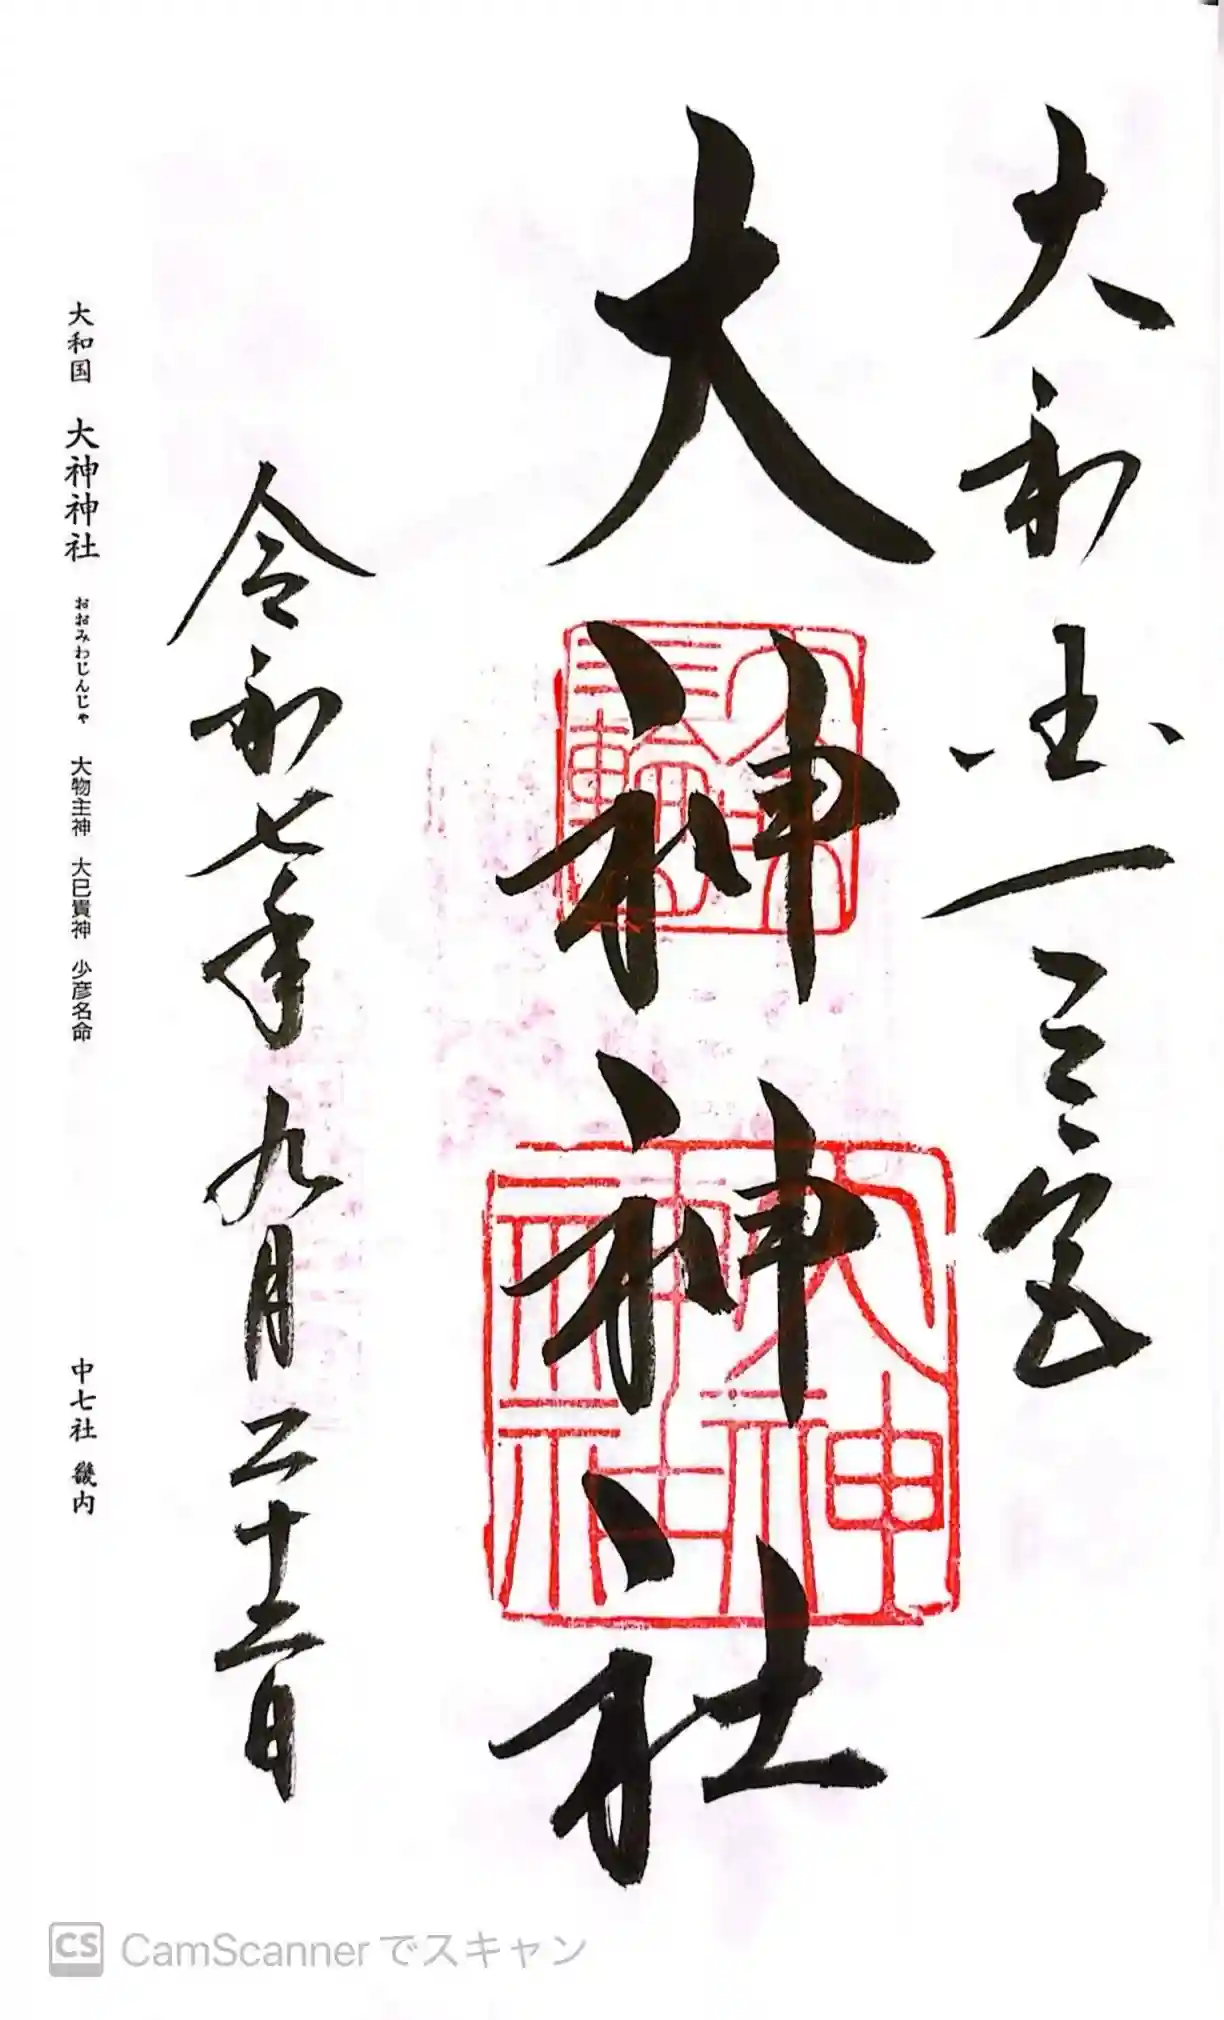 大和国一之宮
大神神社
三輪
大神
大神神社
令和七年九月二十二日
大和国 大神神社 おおみわじんじゃ 大物主神 大已貴神 少彦名命
中七社 畿内
CS CamScannerでスキャン